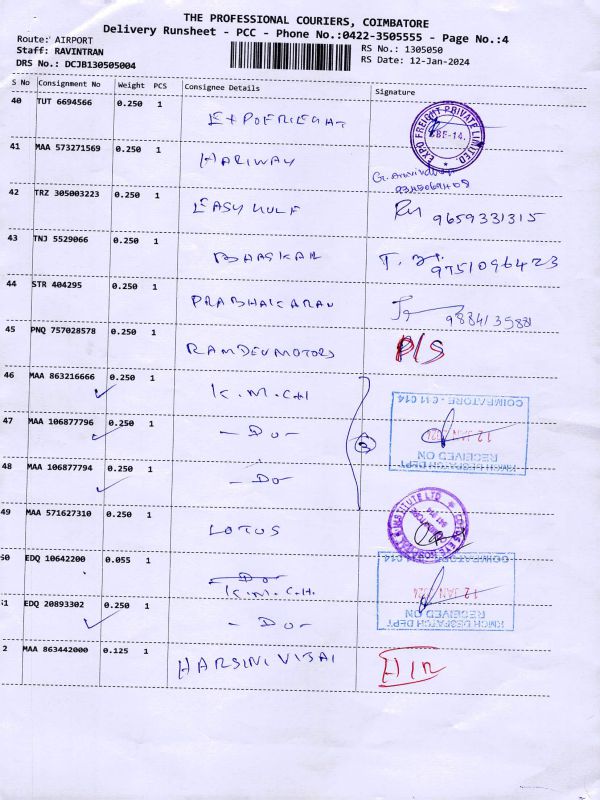 THE PROFESSIONAL COURIERS, COIMBATORE
Delivery Runsheet - PCC - Phone No.:0422-3505555 - Page No.:4
Route: AIRPORT
Staff: RAVINTRAN
RS No.: 1305050
DRS No.: DCJB130505004
RS Date: 12-Jan-2024
S No Consignment No Weight PCS Consignee Details Signature
40 TUT 6694566 0.250 1
EXPO FREIGHT PRIVATE LIMITED
41 MAA 573271569 0.250 1 HARIWAY
42 TRZ 305003223 0.250 1 EASY HULF 9659331315
43 TNJ 5529066 0.250 1 BHASKAR 9751096423
44 STR 404295 0.250 1 PRABHAKARAN 9884135881
45 PNQ 757028578 0.250 1 RAMDEV MOTORS P/S
46 MAA 863216666 0.250 1 K.M.C.H
COIMBATORE - 641 014
12 JAN 2024
RECEIVED ON
KMCH DESPATCH DEPT
47 MAA 106877796 0.250 1 - Do -
48 MAA 106877794 0.250 1 - Do -
49 MAA 571627310 0.250 1 LOTUS
50 EDQ 10642200 0.055 1 Do
K.M.C.H.
COIMBATORE - 641 014
12 JAN 2024
RECEIVED ON
KMCH DESPATCH DEPT
51 EDQ 20893302 0.250 1 - Do -
2 MAA 863442000 0.125 1 HARSINI VIJAI